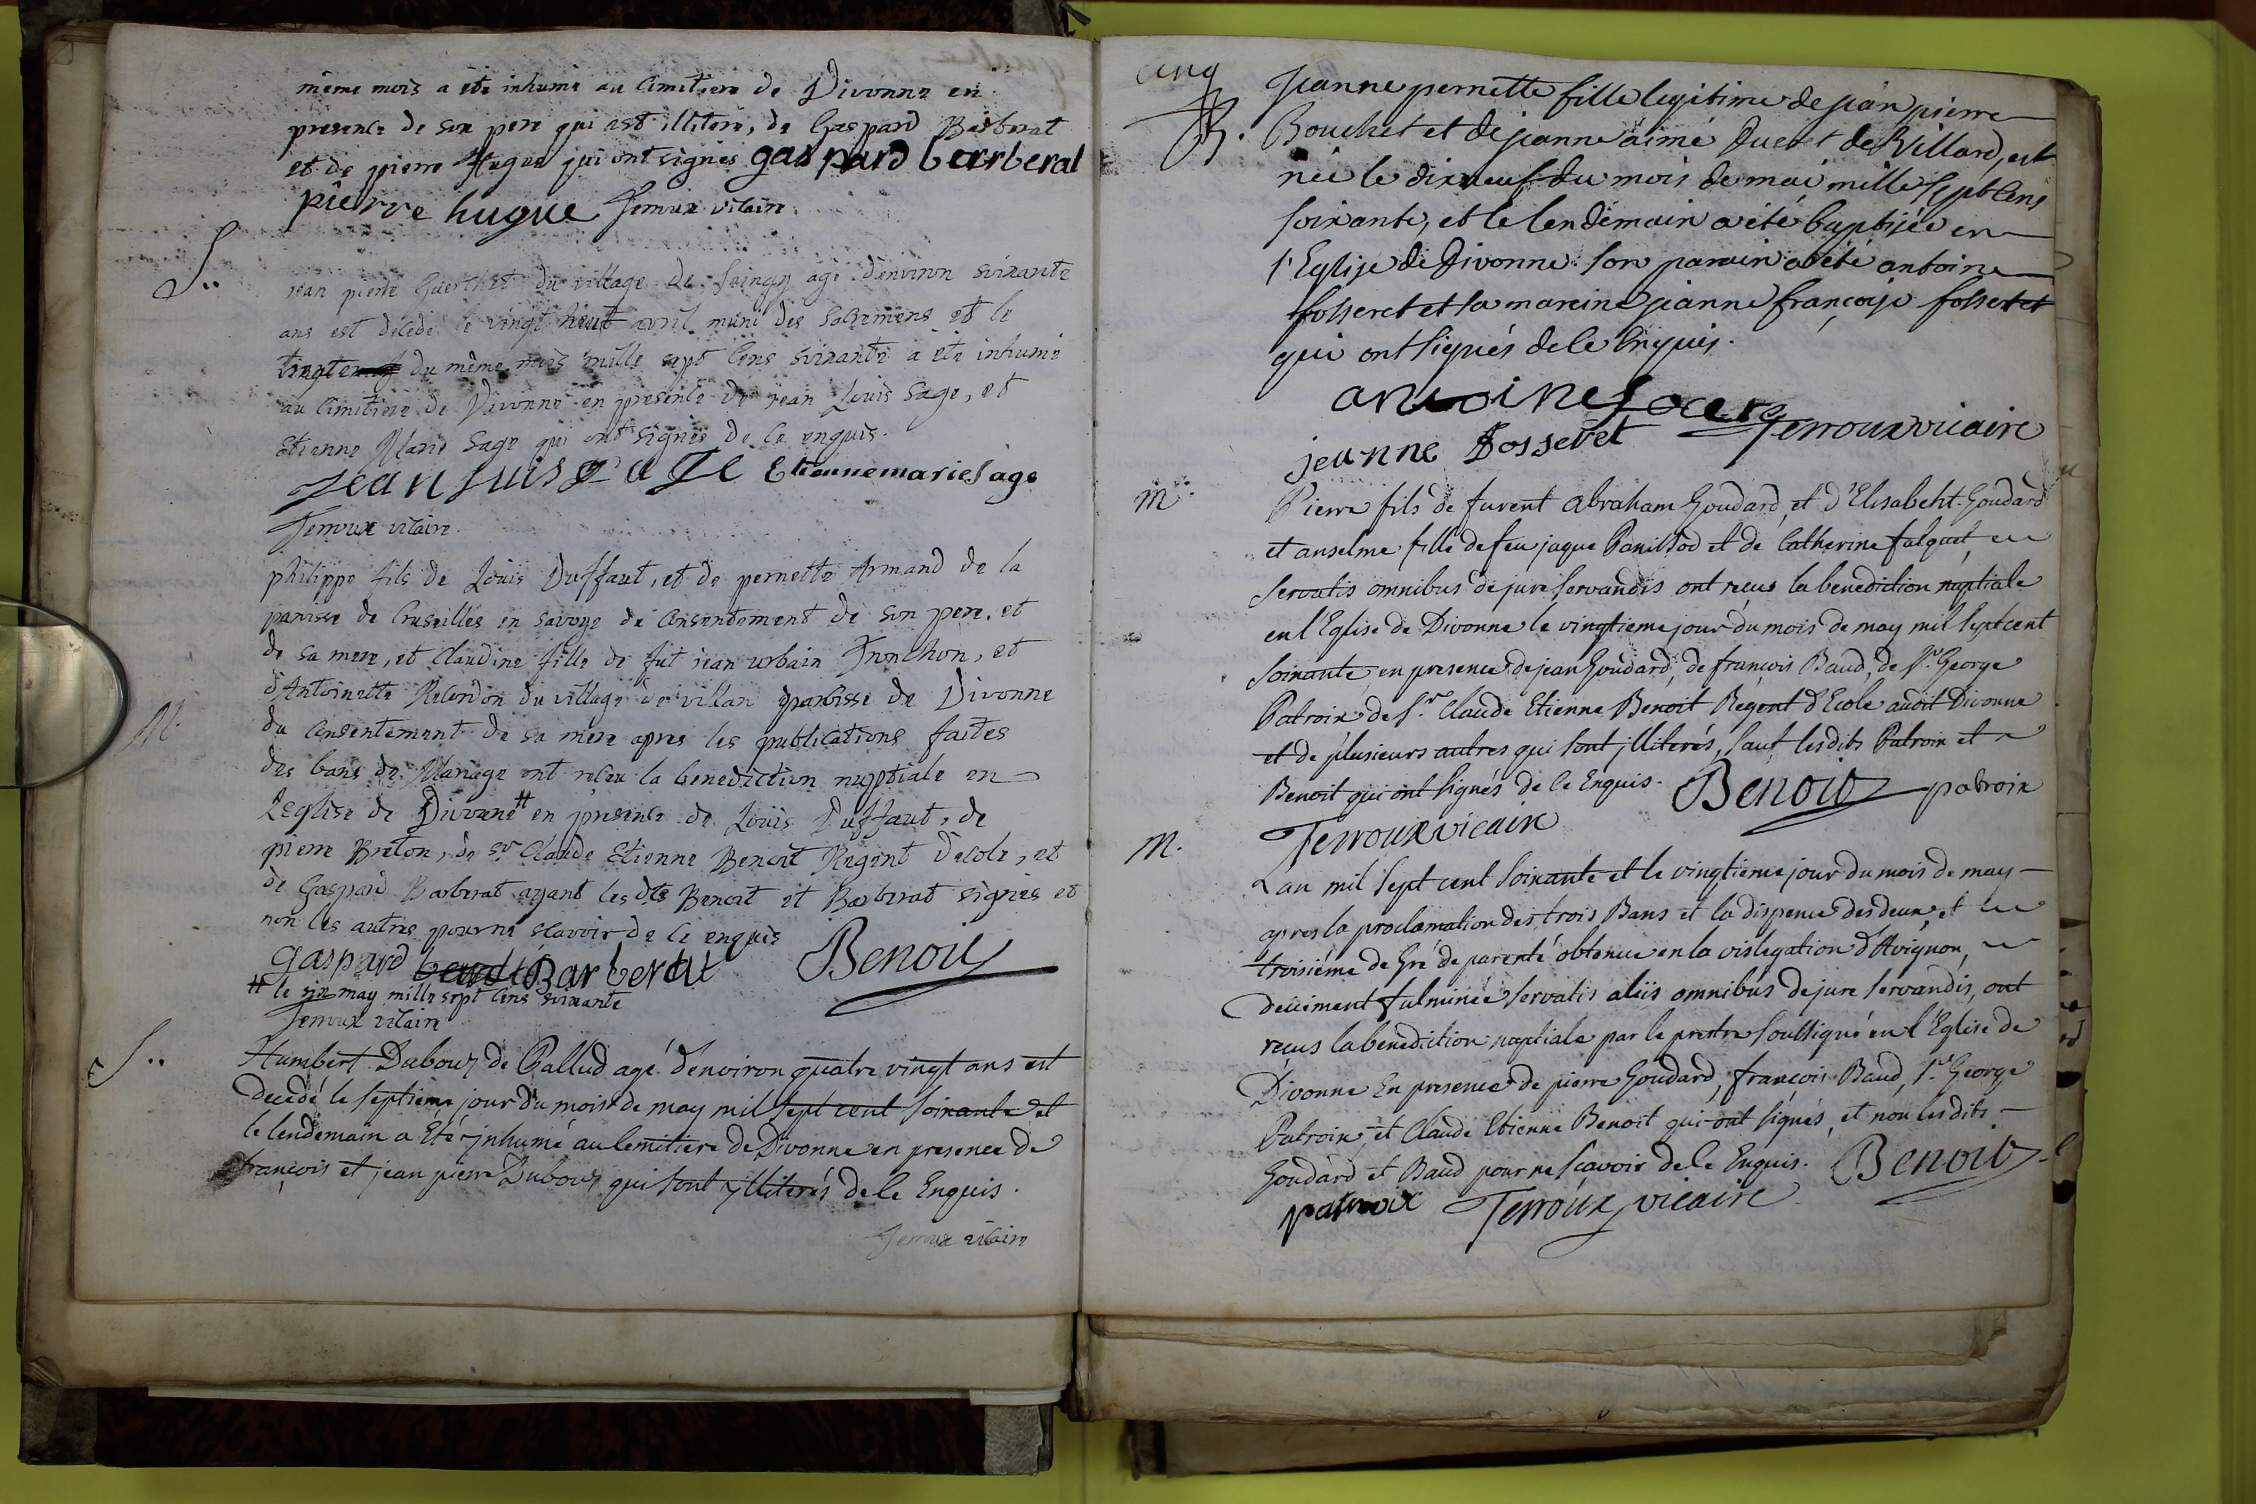 même mois a ete inhumé au Cimitiere de Divonne en
presence de son pere qui est illiteré, de Gaspard Barberat
et de pierre Hugue qui ont signés gaspard barberat
pierre hugue Terroux vicaire
S..
jean pierre du village de age d'environ soixante
ans est décédé le vingt neuf avril muni des Sacremens et le
du même mois mille sept Cens soixante a ete inhumé
au Cimitiere de Divonne en presence de jean Louis Sage, et
Etienne Marie Sage qui ont signés de ce enquis.
Jean Luis Sage Etienne marie Sage
Terroux vicaire.
M.
philippe fils de Louis Duffaut, et de pernette Armand de la
paroisse de Cruseilles en savoye du Consentement de son pere, et
de sa mere, et Claudine fille de fut jean urbain Tronchon, et
d'Antoinette Recordon du village de villar paroisse de Divonne
du Consentement de sa mere apres les publications faites
des bans de Mariage ont reçeu la benediction nuptiale en
L'eglise de Divonne # en presence de Louis Duffaut, de
pierre Breton, de Sr Claude Etienne Benoit Regent d'ecole, et
de Gaspard Barberat ayant les dts Benoit et Barberat signés et
non les autres pour ne scavoir de ce enquis
gaspard Barberat Benoit
# le six may mille sept Cens soixante
Terroux vicaire
S..
Humbert Dubouz de Pallud agé d'environ quatre vingt ans est
decédé le septieme jour du mois de may mil sept cent soixante et
le lendemain a Eté inhumé au Cemitiere de Divonne en presence de
françois et jean pierre Dubouz qui sont jlliterés de Ce Enquis.
Terroux vicaire
cinq
B.
Jeanne pernette fille legitime de jean pierre
Bouchet et de jeanne aimé Duert de Villard, est
née le dixneuf du mois de mai mille Sept Cens
soixante, et le lendemain a été baptisée en
l'Eglise de Divonne son parrain a été antoine
fosseret et sa mareine jeanne françoise fosseret
qui ont signés de ce Enquis.
antoine
jeanne Fosseret Terroux vicaire
M.
Pierre fils de furent abraham Goudard, et d'Elisabeht Goudard
et anselme fille de feu jaque Panissod et de Catherine falquet
servatis omnibus de jure servandis ont reçus la benediction nuptiale
en l'Eglise de Divonne le vingtieme jour du mois de may mil Sept cent
Soixante en presence de jean Goudard, de françois Baud, de Sr. George
Patroix de Sr. Claude Etienne Benoit Régent d'Ecole audit Divonne
et de plusieurs autres qui sont jlliterés, sauf les dits Patroix et
Benoit qui ont signés de Ce Enquis. Benoit patroix
Terroux vicaire
M.
L'an mil sept cent soixante et le vingtieme jour du mois de may
apres la proclamation des trois Bans et la dispense des deux, et
troisiéme degré de parenté obtenue en la vislegation d'Avignon,
deüement fulminée servatis aliis omnibus de jure servandis, ont
reçus la benediction nuptiale par le prettre soussigné en l'Eglise de
Divonne En presence de pierre Goudard, françois Baud, Sr. George
Patroix, et Claude Etienne Benoit qui ont signés, et non les dits
Goudard et Baud pour ne scavoir de Ce Enquis. Benoit
patroix Terroux vicaire